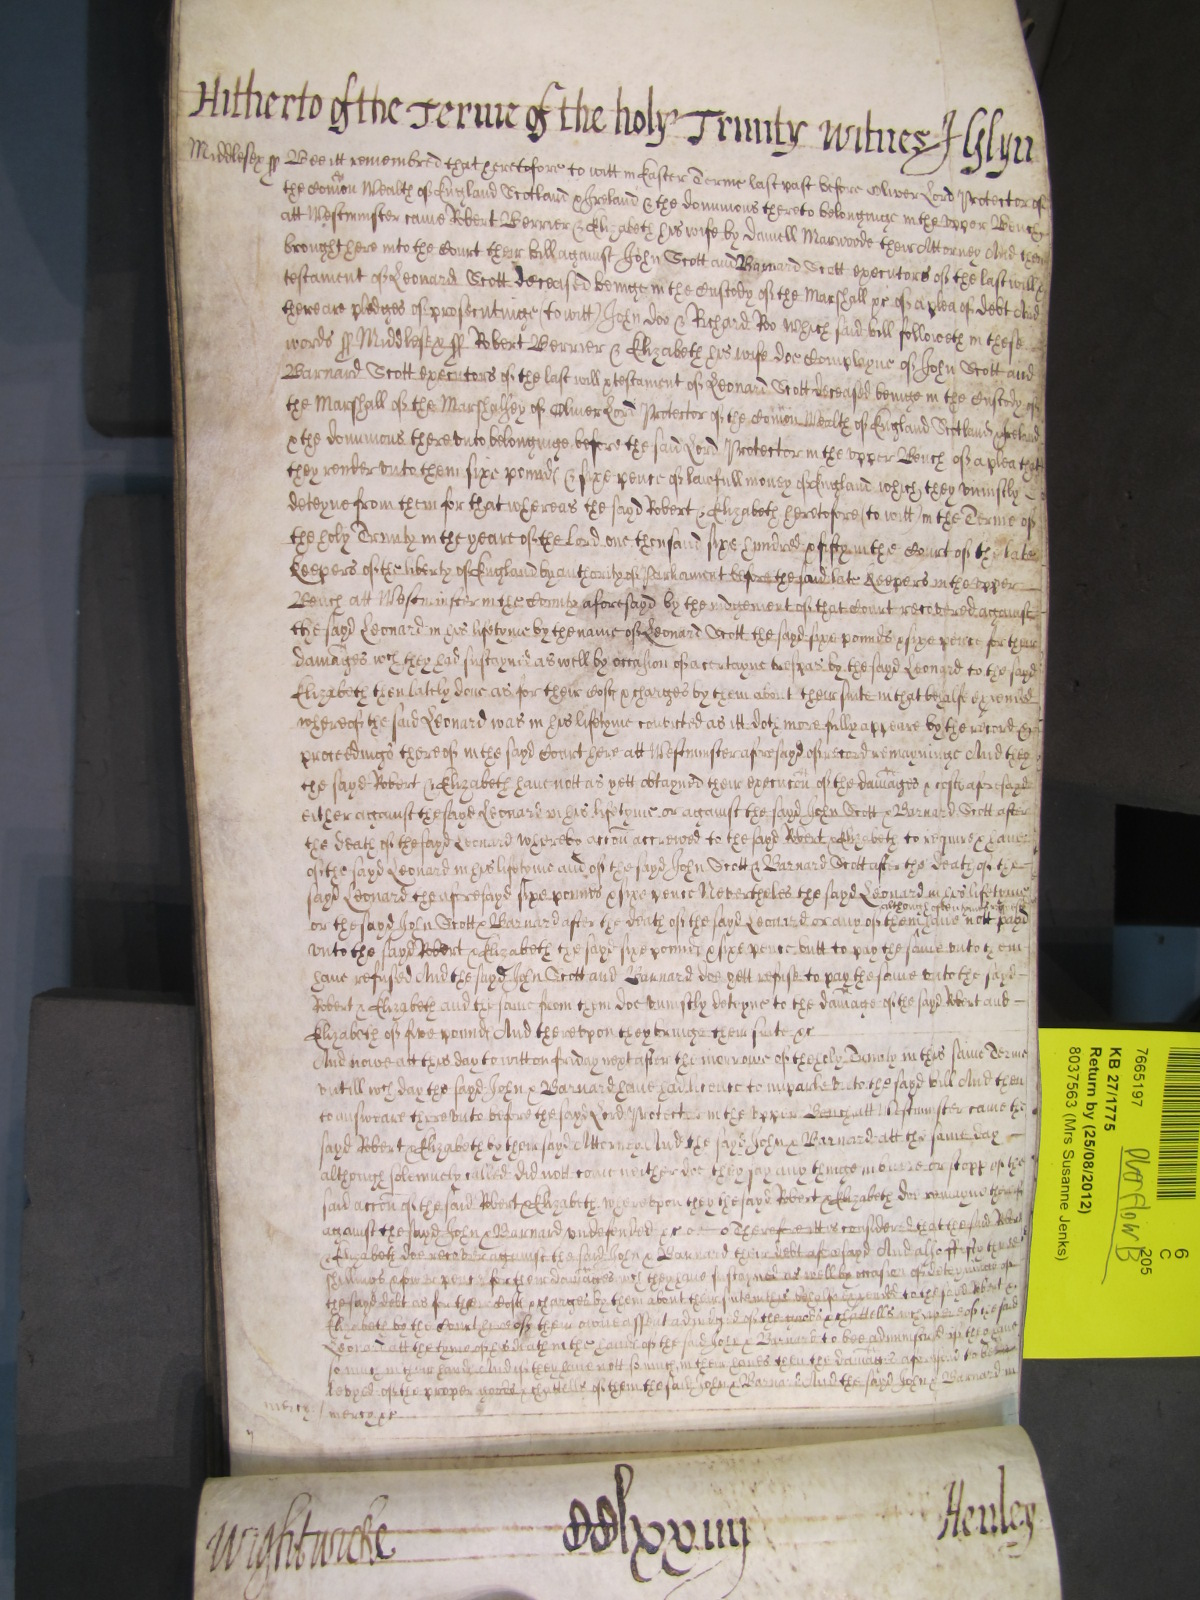 Hitherto of the Terme of the holy Trinity Witnes J Glyn
Middlesex ss Bee itt remembred that heretofore to witt in Easter Terme last past before Oliver Lord Protector of
the Comon Wealth of England Scotland & Ireland & the dominions thereto belonginge in the upper Bench
att Westminster came Robert Berrier & Elizabeth his wife by Daniell Marwoode their Attorney And then
brought here into the Court their bill against John Scott and Barnard Scott executors of the last will &
testament of Leonard Scott deceased beinge in the Custody of the Marshall &c of a plea of debt And
there are pledges of prosecutinge (to witt) John Doo & Richard Roo Which said bill followeth in these
words ss Middlesex ss Robert Berrier & Elizabeth his wife doe Complayne of John Scott and
Barnard Scott executors of the last will & testament of Leonard Scott deceased beinge in the Custody of
the Marshall of the Marshalsey of Oliver Lord Protector of the Comon Wealth of England Scotland & Ireland
& the dominions thereunto belonginge before the said Lord Protector in the upper Bench of a plea that
they render unto them sixe pounds & sixe pence of lawfull money of England which they uniustly
deteyne from them for that whereas the sayd Robert & Elizabeth heretofore (to witt) in the Terme of
the holy Trinity in the yeare of the Lord one thousand sixe hundred & fifty in the Court of the late
Keepers of the liberty of England by authority of Parliament before the said late Keepers in the upper
Bench att Westminster in the County aforesayd by the iudgement of that Court recovered against
the sayd Leonard in his lifetyme by the name of Leonard Scott the sayd sixe pounds & sixe pence for their
damages wch they had susteyned as well by occasion of a certayne trespas by the sayd Leonard to the sayd
Elizabeth then lately done as for their Costs & charges by them about their suite in that behalfe expended
whereof the said Leonard was in his lifetyme convicted as itt doth more fully appeare by the record &
proceedings thereof in the sayd Court here att Westminster aforesayd of record remayninge And they
the sayd Robert & Elizabeth have nott as yett obtayned their execucon of the damages & costs aforesayd
either against the sayd Leonard in his lifetyme or against the sayd John Scott & Barnard Scott after
the death of the sayd Leonard whereby accon accrewed to the sayd Robert & Elizabeth to require & have
of the sayd Leonard in his lifetyme and of the sayd John Scott & Barnard Scott after the death of the
sayd Leonard the aforesayd sixe pounds & sixe pence Neverthelesse the sayd Leonard in his lifetyme
although often tymes required
or the sayd John Scott & Barnard after the death of the sayd Leonard or any of them have nott payd
unto the sayd Robert & Elizabeth the sayd sixe pounds & sixe pence butt to pay the same unto them
have refused And the sayd John Scott and Barnard doe yett refuse to pay the same unto the sayd
Robert & Elizabeth and the same from them doe uniustly deteyne to the damage of the sayd Robert and
Elizabeth of five pounds And thereupon they bringe their suite &c
And nowe att this day to witt on friday next after the morrowe of the holy Trinity in this same Terme
untill wch day the sayd John & Barnard have had licence to imparle unto the sayd bill And then
to answeare thereunto before the sayd Lord Protector in the upper Bench att Westminster came the
sayd Robert & Elizabeth by their sayd Attorney And the sayd John & Barnard att the same day
although solemnely called did nott come neither doe they say any thinge in barre or stopp of the
said accon of the said Robert & Elizabeth whereupon they the sayd Robert & Elizabeth doe remayne therein
against the sayd John & Barnard undefended &c Therefore itt is considered that the said Robert
& Elizabeth doe recover against the said John & Barnard their debt aforesayd And also fifty three
shillings & fower pence for their damages wch they have susteyned as well by occasion of deteyninge of
the sayd debt as for their Costs & charges by them about their suite in this behalfe expended to the sayd Robert &
Elizabeth by the Court here of their owne assent adiudged of the goods & chattells which were of the said
Leonard att the tyme of his death in the hands of the said John & Barnard to bee administred if they have
so much in their hands And if they have nott so much in their hands then the damages aforesaid to be
levyed of the proper goods & chattells of them the said John & Barnard And the sayd John & Barnard in
mercy / mercy &c
Wightwicke CClxxiiij Henley
7665197
KB 27/1775
Return by (25/08/2012)
8037563 (Mrs Susanne Jenks)
6
C
205